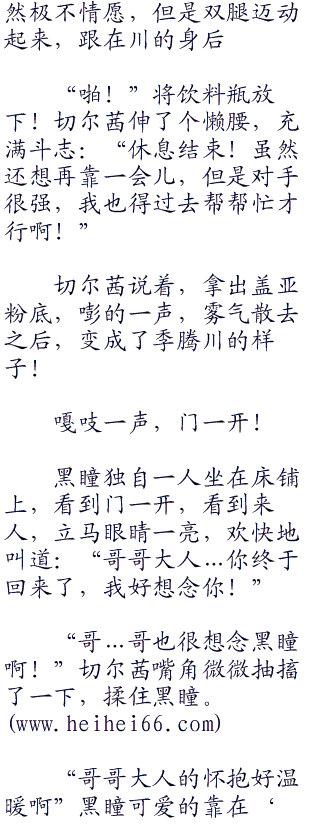 然极不情愿，但是双腿迈动
起来，跟在川的身后
“啪！”将饮料瓶放
下！切尔茜伸了个懒腰，充
满斗志：“休息结束！虽然
还想再靠一会儿，但是对手
很强，我也得过去帮帮忙才
行啊！”
切尔茜说着，拿出盖亚
粉底，嘭的一声，雾气散去
之后，变成了季腾川的样
子！
嘎吱一声，门一开！
黑瞳独自一人坐在床铺
上，看到门一开，看到来
人，立马眼睛一亮，欢快地
叫道：“哥哥大人…你终于
回来了，我好想念你！”
“哥…哥也很想念黑瞳
啊！”切尔茜嘴角微微抽搐
了一下，揉住黑瞳。
(www.heihei66.com)
“哥哥大人的怀抱好温
暖啊”黑瞳可爱的靠在‘